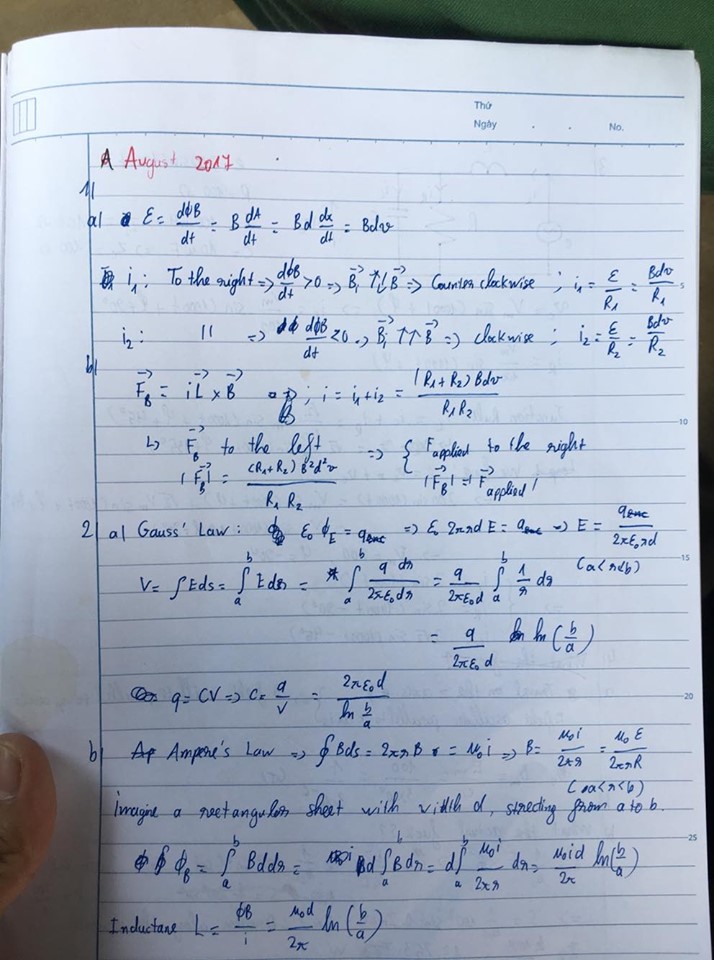 Thứ
Ngày . . No.
August 2017
1)
a) ε = dϕB/dt = B dA/dt = Bd dx/dt = Bdv
i₁: To the right => dϕB/dt > 0 => B⃗i ↑↓ B⃗ => Counter clockwise ; i₁ = ε/R₁ = Bdv/R₁
5
i₂: 11 => dϕB/dt < 0 => B⃗i ↑↑ B⃗ => clockwise ; i₂ = ε/R₂ = Bdv/R₂
b)
F⃗B = iL⃗ × B⃗ ; i = i₁ + i₂ = (R₁+R₂)Bdv/R₁R₂
10
↳ F⃗B to the left => { F applied to the right
|F⃗B| = (R₁+R₂)B²d²v/R₁R₂ |F⃗B| = |F⃗applied|
2 a) Gauss' Law: ε₀ ϕE = qenc => ε₀ 2πrd E = qenc => E = qenc/2πε₀rd
15
(a<r<b)
V = ∫Eds = ∫ₐᵇ Edr = ∫ₐᵇ q dr/2πε₀dr = q/2πε₀d ∫ₐᵇ 1/r dr
= q/2πε₀d ln(b/a)
q = CV => C = q/V = 2πε₀d/ln b/a
20
b) Ampere's Law => ∮Bds = 2πrB = μ₀i => B = μ₀i/2πr = μ₀ε/2πrR
(a<r<b)
imagine a rectangular sheet with width d, streding from a to b.
25
ϕB = ∫ₐᵇ Bddr = d∫ₐᵇ Bdr = d∫ₐᵇ μ₀i/2πr dr = μ₀id/2π ln(b/a)
Inductane L = ϕB/i = μ₀d/2π ln(b/a)